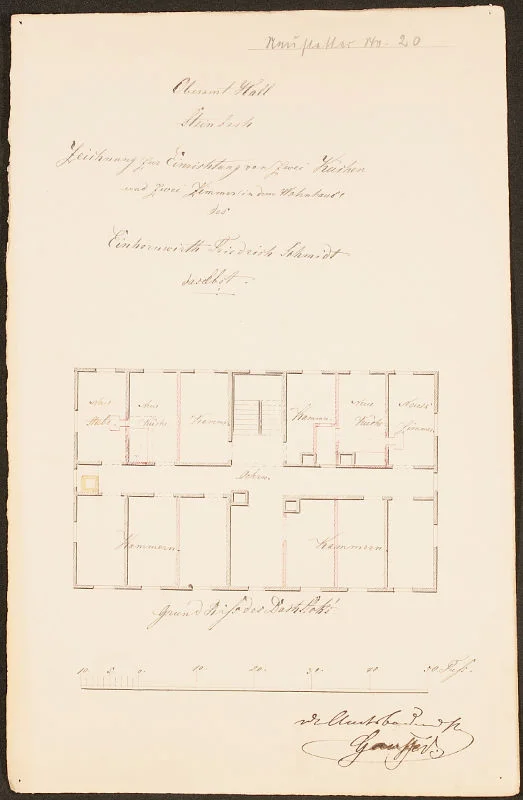 No. 20
Oberamt Hall
Steinbach
Zeichnung zur Einrichtung von zwei Küchen
und zwei Zimmer in dem Wohnhaus
des
Einhornwirth Friedrich Schmidt
daselbst.
Neue
Neue
Neue
Neues
Küche
Kammer
Kammer
Küche
Zimmer
Oehrn.
Kammern.
Kammern.
Grund Riss des Dachstoks
10. 5. 0. 10. 20. 30. 40. 50 Fuss.